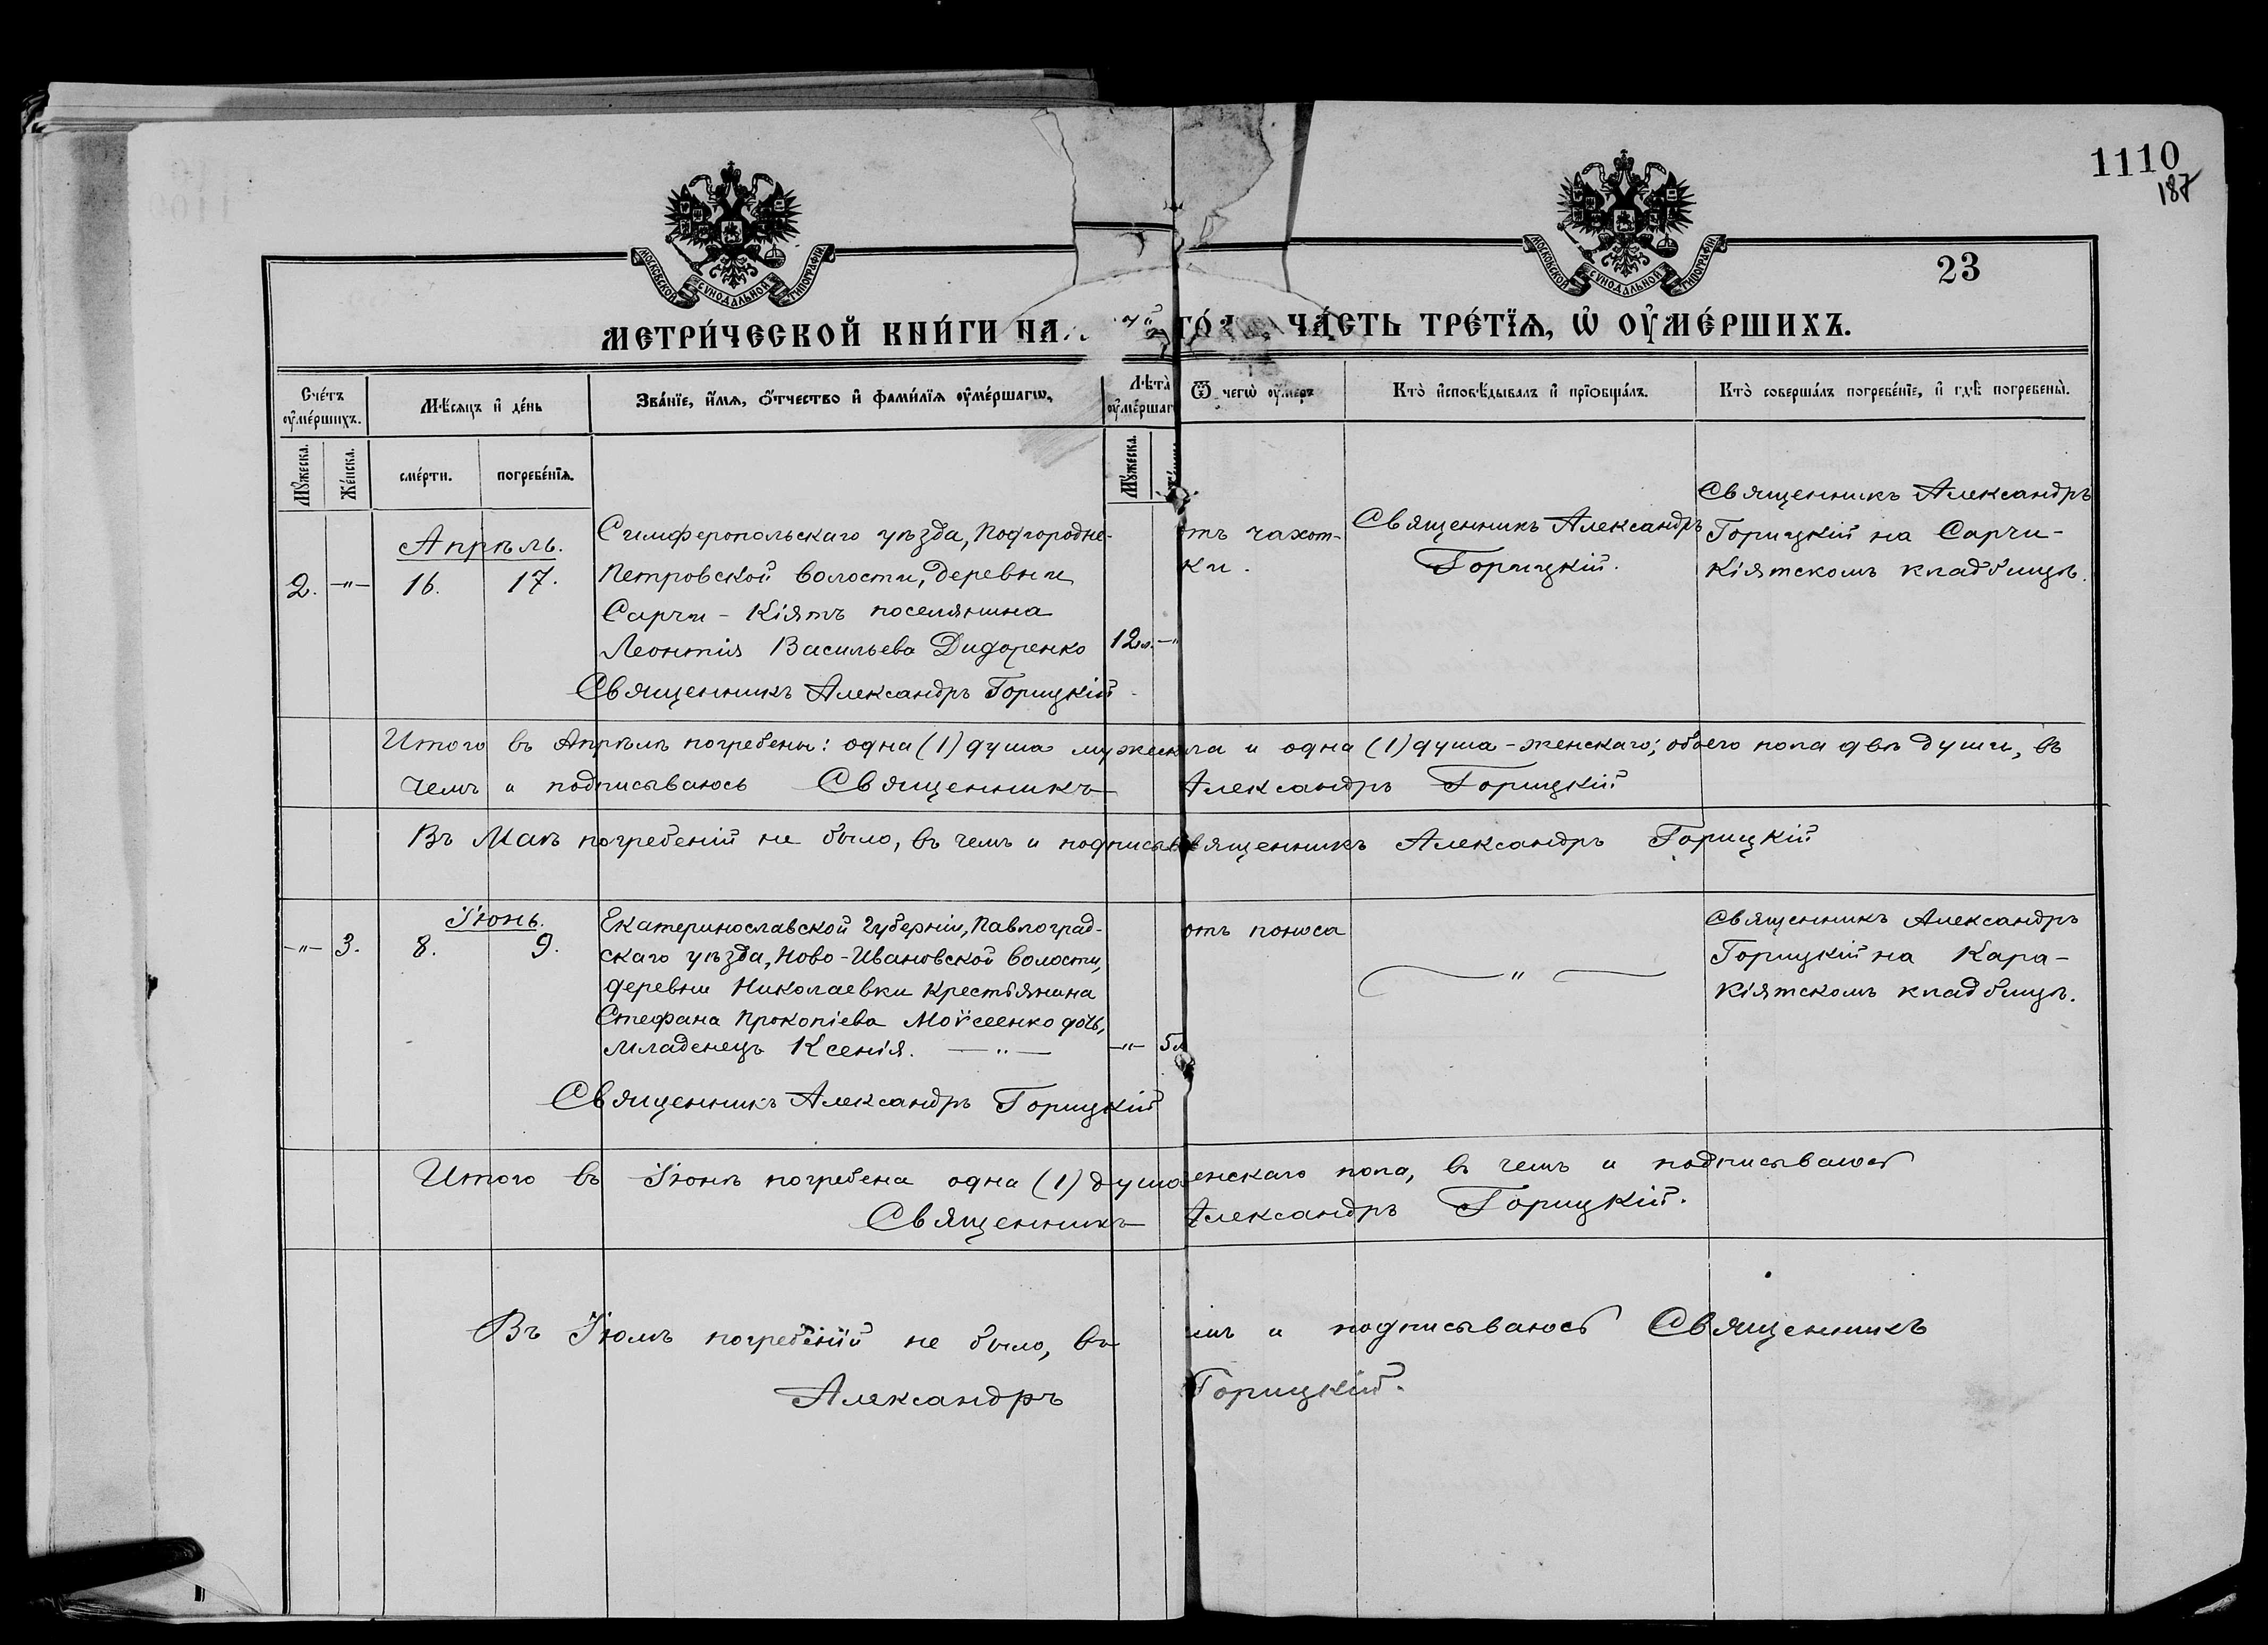 1110
187
23
МОСКОВСКОЙ СѴНОДАЛЬНОЙ ТИПОГРАФІИ
МОСКОВСКОЙ СѴНОДАЛЬНОЙ ТИПОГРАФІИ
МЕТРИ́ЧЕСКОЙ КНИ́ГИ НА ЧА́СТЬ ТРЕ́ТЇѦ, Ѡ҆ ОУ҆МЕ́РШИХЪ.
Сче́тъ оу҆ме́ршихъ.
Мѣ́сѧцъ и҆ де́нь
Зва́нїе, и҆́мѧ, ѻ҆́тчество и҆ фами́лїѧ оу҆ме́ршагѡ.
Лѣ́та оу҆ме́ршаг
Ѿ чегѡ̀ оу҆́меръ
Кто̀ и҆сповѣ́дывалъ и҆ прїѻбща́лъ.
Кто̀ соверша́лъ погребе́нїе, и҆ гдѣ̀ погребены̀.
Мꙋ́жеска.
Же́нска.
сме́рти.
погребе́нїѧ.
Мꙋ́жеска.
Апрѣль.
2. -"- 16. 17.
Симферопольскаго уѣзда, Подгородне-
Петровской волости, деревни
Сарчи - Кіятъ поселянина
Леонтія Васильева Дидоренко
12 л. -"
Священникъ Александръ Горицкій
отъ чахот-
ки.
Священникъ Александръ
Горицкій.
Священникъ Александръ
Горицкій на Сарчи-
Кіятскомъ кладбищѣ.
Итого въ Апрѣлѣ погребены: одна (1) душа мужескаго и одна (1) душа - женскаго; обоего пола двѣ души, въ
чемъ и подписываюсь Священникъ Александръ Горицкій
Въ Маѣ погребеній не было, въ чемъ и подписыв Священникъ Александръ Горицкій
Іюнь.
-"- 3. 8. 9.
Екатеринославской губерніи, Павлоград-
скаго уѣзда, Ново-Ивановской волости,
деревни Николаевки крестьянина
Стефана Прокопіева Моисеенко дочь,
младенецъ Ксенія. -"-
-"- 5 л
Священникъ Александръ Горицкій
отъ поноса
"
Священникъ Александръ
Горицкій на Кара-
Кіятскомъ кладбищѣ.
Итого въ Іюнѣ погребена одна (1) душа женскаго пола, въ чемъ и подписываюсь
Священникъ Александръ Горицкій.
Въ Іюлѣ погребеній не было, въ чемъ и подписываюсь Священникъ
Александръ Горицкій.